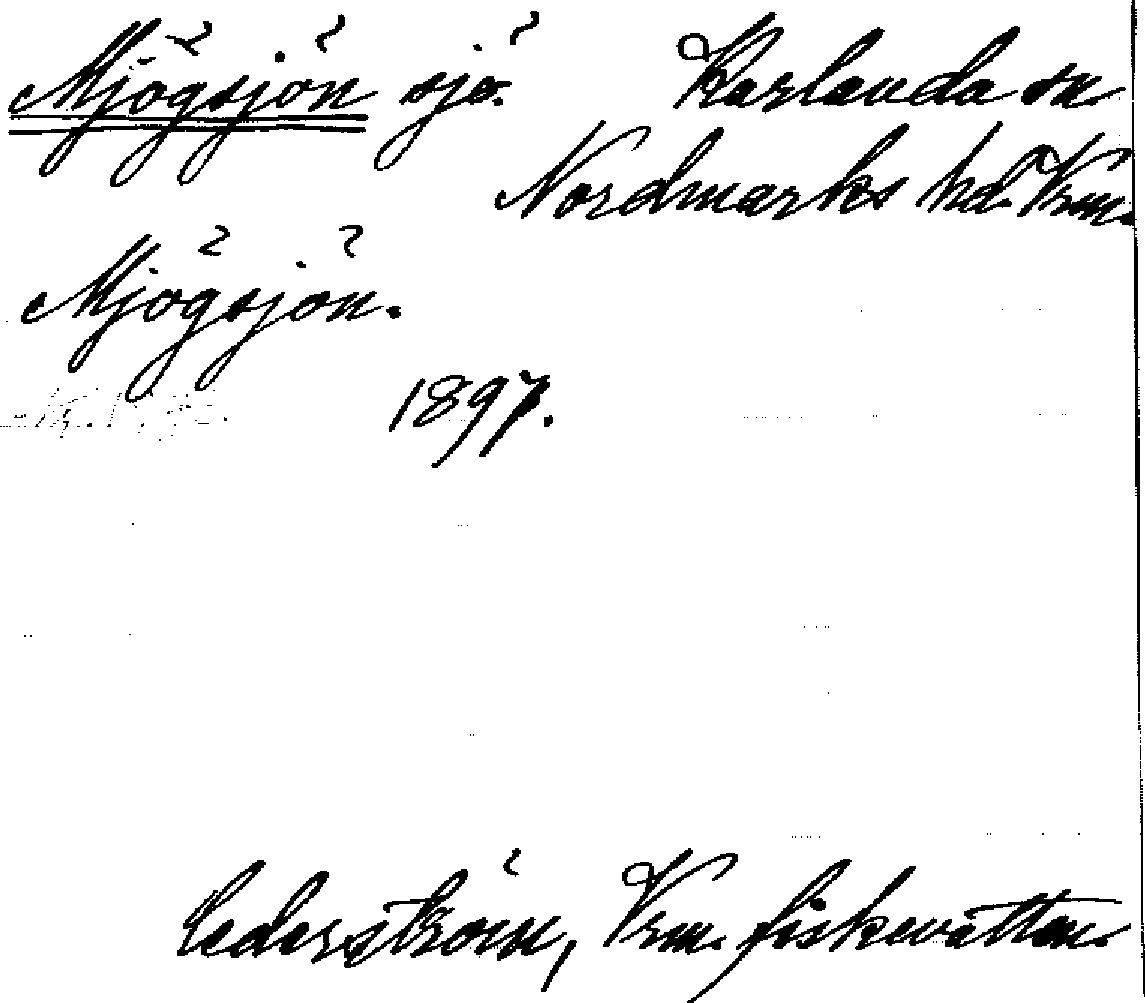 Mjögsjön sjö. Karlanda sn
Nordmarks hd. Vrm.
Mjögsjön.
1897.
Cederström, Vrm. fiskevatten.